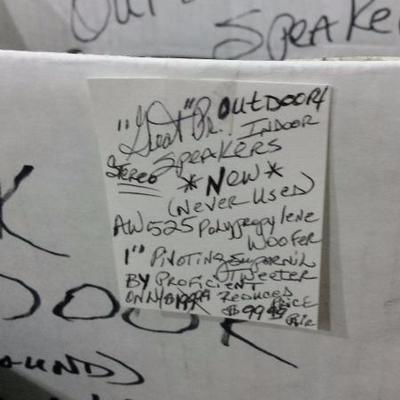 OUT
SPEAKE
"Great" Pr. OUTDOOR/
INDOOR
STEREO SPEAKERS
*NEW*
(NEVER USED)
AW525 Polypropylene
WOOFER
1" Pivoting
TWEETER
BY PROFICIENT
ONLY REDUCED
PRICE
$99 Pair
OUND)